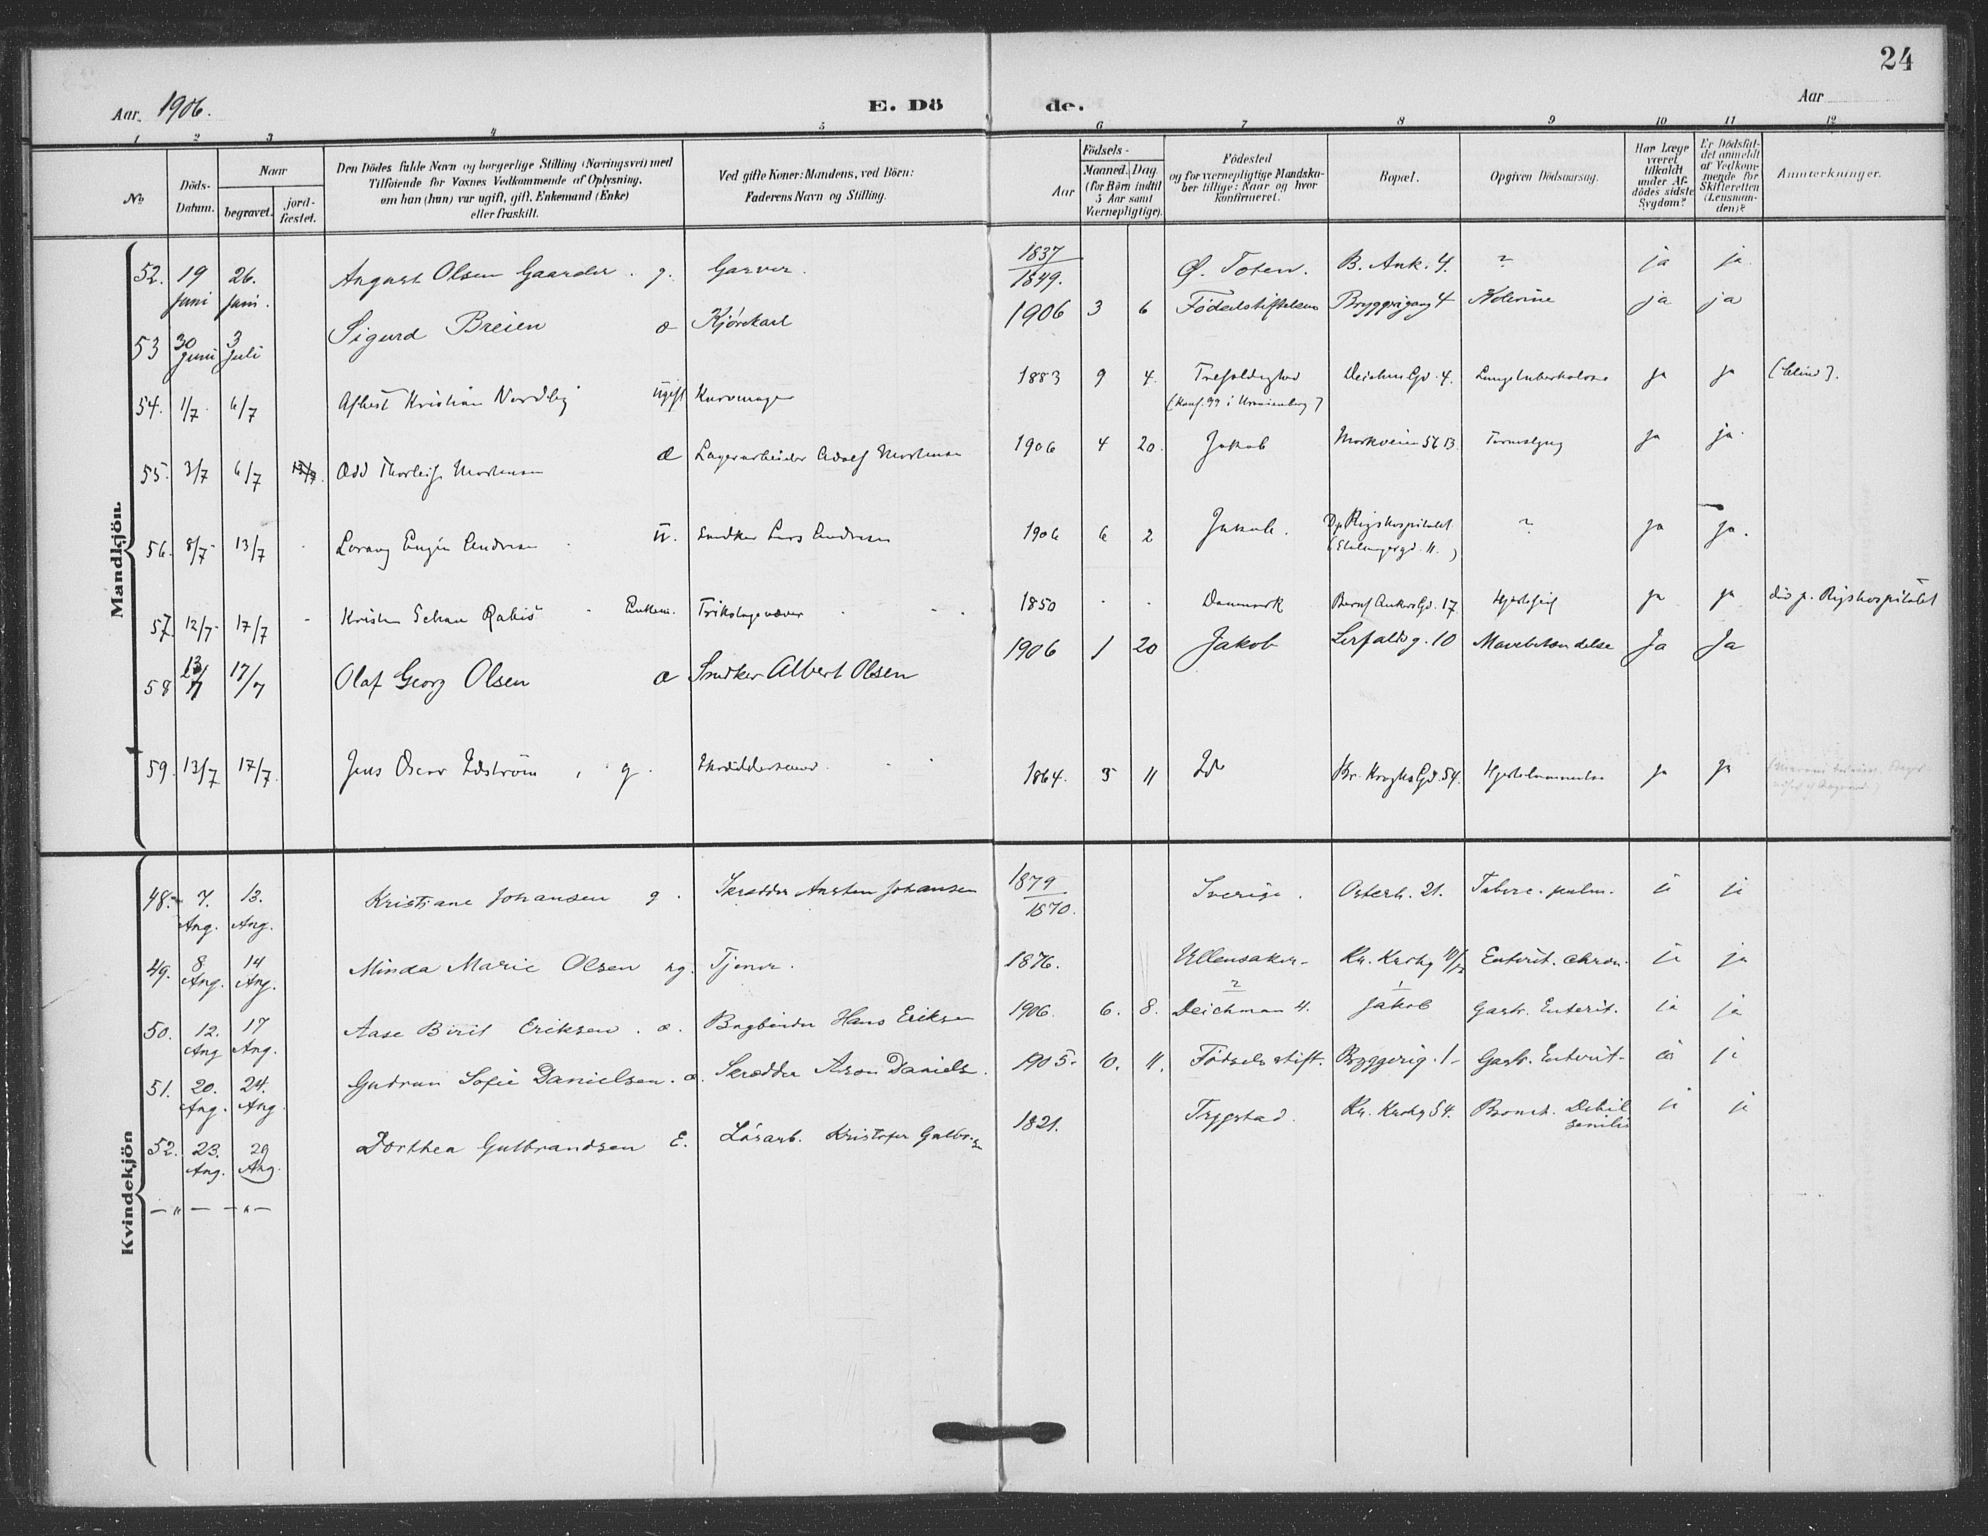 24
Aar 1906.
E. Dö de.
Aar
1 2 3 4 5 6 7 8 9 10 11 12
No
Döds-Datum.
Naar
begravet.
jordfæstet.
Den Dödes fulde Navn og borgerlige Stilling (Næringsvei) med
Tilföiende for Voxnes Vedkommende af Oplysning,
om han (hun) var ugift, gift, Enkemand (Enke)
eller fraskilt.
Ved gifte Koner: Mandens, ved Börn:
Faderens Navn og Stilling.
Födsels-
Aar
Maaned. Dag.
(for Börn indtil
5 Aar samt
Værnepligtige).
Födested
og for værnepligtige Mandska-
ber tillige: Naar og hvor
konfirmeret.
Bopæl.
Opgiven Dödsaarsag.
Har Læge
været
tilkaldt
under Af-
dödes sidste
Sygdom?
Er Dödsfal-
det anmeldt
af Vedkom-
mende for
Skifteretten
(Lensman-
den)?
Anmærkninger.
Mandkjön.
52. 19 Juni 26. Juni. August Olsen Gaarder. g. Garver. 1837/1849. Ø. Toten. B. Ank. 4. ? ja ja.
53 30 Juni 3 Juli Sigurd Breien æ Kjørekarl 1906 3 6 Fødselsstiftelsen Bryggerigang 4 Kolerine ja ja
54. 1/7 6/7 Albert Kristian Nordby ugift Kurvmager 1883 9 4. Trefoldighed (Konf. 99 i Uranienborg) Deichm. Gd. 4. Lungetuberkulose ja ja (blind).
55. 3/7 6/7 Odd Thorleif Mortensen Æ Lagerarbeider Adolf Mortensen 1906 4 20. Jakob Markveien 56 B. Tarmslyng ja ja.
56. 8/7 13/7 Eugen Andresen u. Snedker Lars Andresen 1906 6 2 Jakob. Rigshospitalet ? ja ja.
57. 12/7 17/7 Kristen Enkem. Trikotagevæver 1850 Danmark Bernt Ankers Gd. 17 Hjertefeil ja ja død p. Rigshospitalet
58 13/7 17/7 Olaf Georg Olsen æ Snedker Albert Olsen 1906 1 20 Jakob Lerfaldsg. 10 Mavebetændelse Ja Ja
59. 13/7 17/7. Jens Oscar Edström, g. Skræddersvend. 1864. 5 11 Kr. Kroghs Gd. 54. Hjertelammelse ja ja
Kvindekjön
48. 7. Aug. 13. Aug. Kristiane Johansen g. Skrædder Johansen 1879/1870. Sverige. Osterh. 21. Tuberc. pulm. ja ja
49. 8. Aug. 14 Aug. Minda Marie Olsen ug. Tjener. 1876. Ullensaker- Kr. Krohg Enterit. chron. ja ja
50. 12. Aug 17 Aug. Aase Birit Eriksen. æ. Bogbinder Hans Eriksen 1906. 6. 8. Deichman 4. Jakob Gastr. Enterit. ja ja
51. 20. Aug. 24. Aug. Gudrun Sofie Danielsen. æ. Skrædder Aron Daniels. 1905. 10. 11. Fødselsstift. Bryggerig. 1- Gastr. Enterit- ja ja
52. 23. Aug. 29 Aug. Dorthea Gulbrandsen E. Løsarb. Kristofer 1821. Trygstad. Kr. Krohg 54. Bronch. Debil. senilis ja ja
— " — — " —